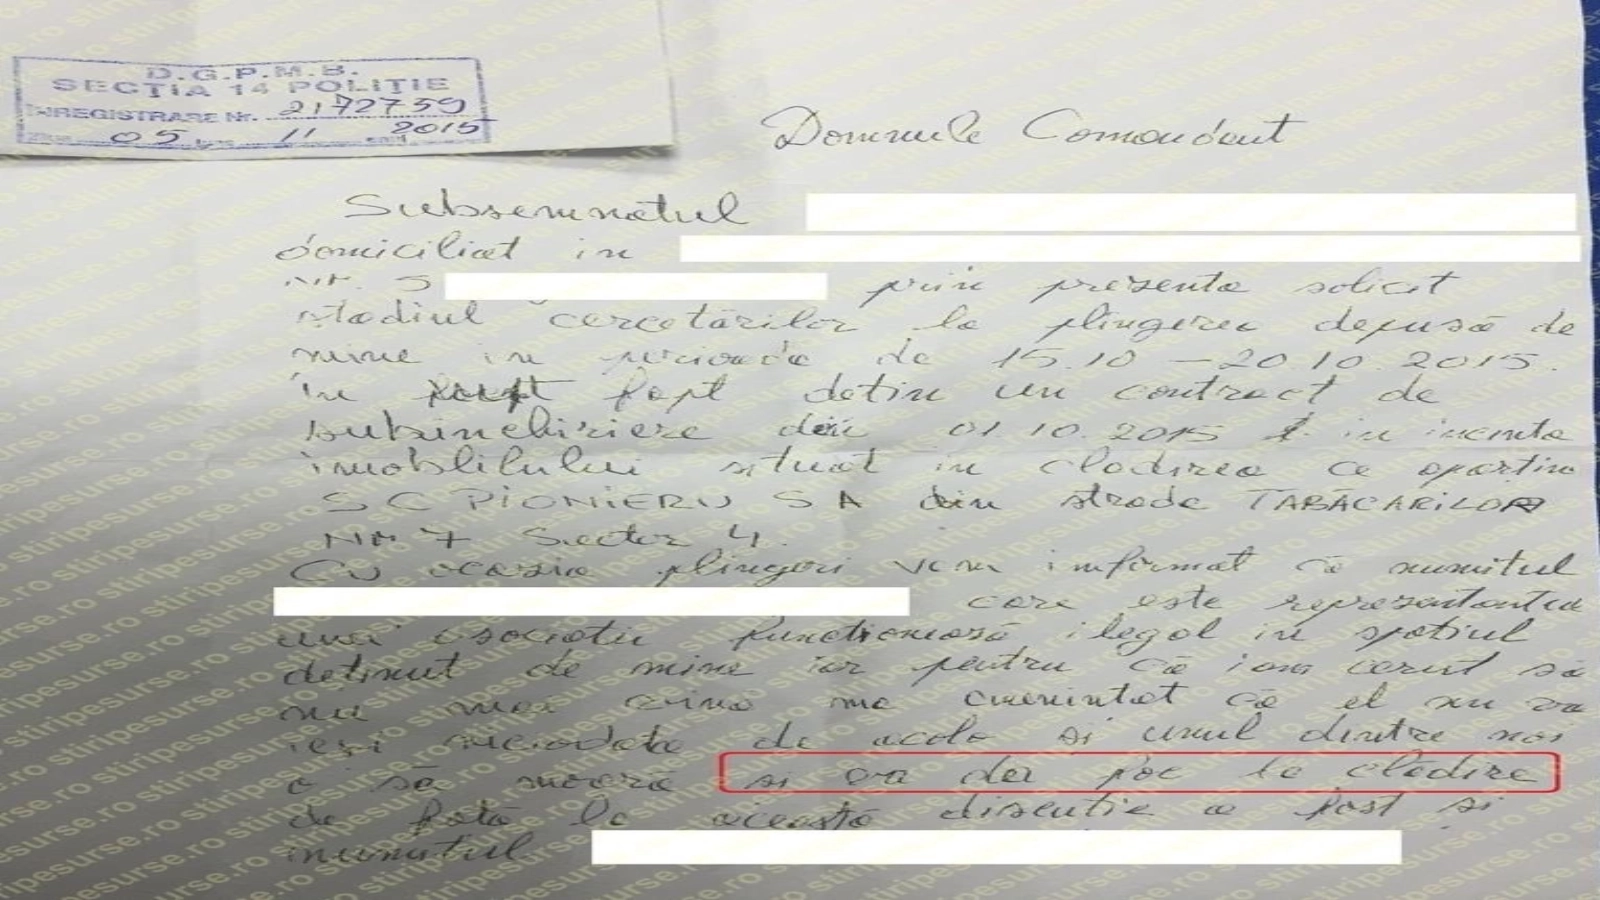 D.G.P.M.B.
SECȚIA 14 POLIȚIE
ÎNREGISTRARE Nr. 2172759
05 11 2015
Domnule Comandant
Subsemnatul
domiciliat in
NR. 5 prin prezenta solicit
stadiul cercetărilor la plingerea depusă de
mine in perioada de 15.10 – 20.10.2015.
În fapt detin un contract de
subinchiriere din 01.10.2015 in incinta
imoblilului situat in cladirea ce apartine
SC PIONIERU SA din strada TABĂCARILOR
NR 7 Sector 4.
Cu ocazia plingeri v-am informat că numitul
care este reprezentantul
unei asociatii functionează ilegal in spatiul
deținut de mine iar pentru că i-am cerut să
nu mai vină m-a amenintat că el nu va
iesi niciodata de acolo si unul dintre noi
o să moară si va da foc la clădire
de fată la această discutie a fost si
numitul
stiripesurse.ro